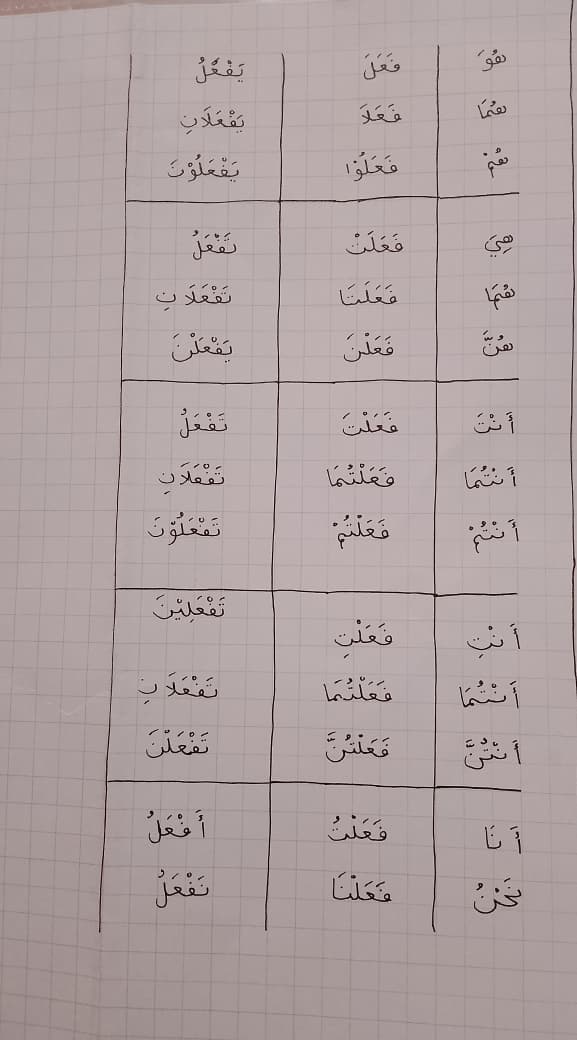 هُوَ فَعَلَ يَفْعَلُ
هُمَا فَعَلَا يَفْعَلَانِ
هُمْ فَعَلُوْا يَفْعَلُوْنَ
هِيَ فَعَلَتْ تَفْعَلُ
هُمَا فَعَلَتَا تَفْعَلَانِ
هُنَّ فَعَلْنَ يَفْعَلْنَ
أَنْتَ فَعَلْتَ تَفْعَلُ
أَنْتُمَا فَعَلْتُمَا تَفْعَلَانِ
أَنْتُمْ فَعَلْتُمْ تَفْعَلُوْنَ
أَنْتِ فَعَلْتِ تَفْعَلِيْنَ
أَنْتُمَا فَعَلْتُمَا تَفْعَلَانِ
أَنْتُنَّ فَعَلْتُنَّ تَفْعَلْنَ
أَنَا فَعَلْتُ أَفْعَلُ
نَحْنُ فَعَلْنَا نَفْعَلُ